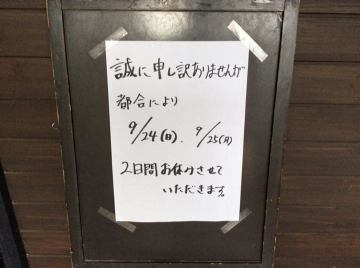 誠に申し訳ありませんが
都合により
9/24(日)、9/25(月)
2日間お休みさせて
いただきます。